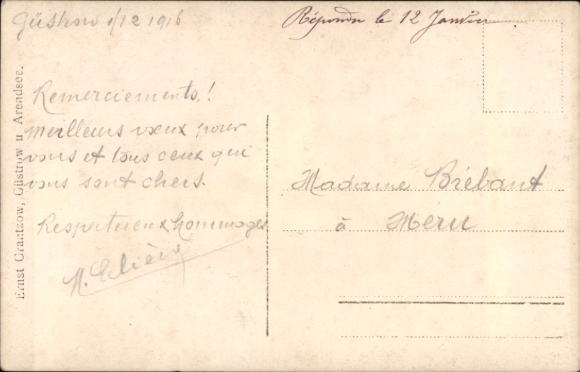 Güstrow 1/12 1916
Répondu le 12 Janvier
Remerciements!
Meilleurs vœux pour
vous et tous ceux qui
vous sont chers.
Respectueux hommages
Madame Brébant
à Meru
Ernst Crantzow, Güstrow u. Arendsee.